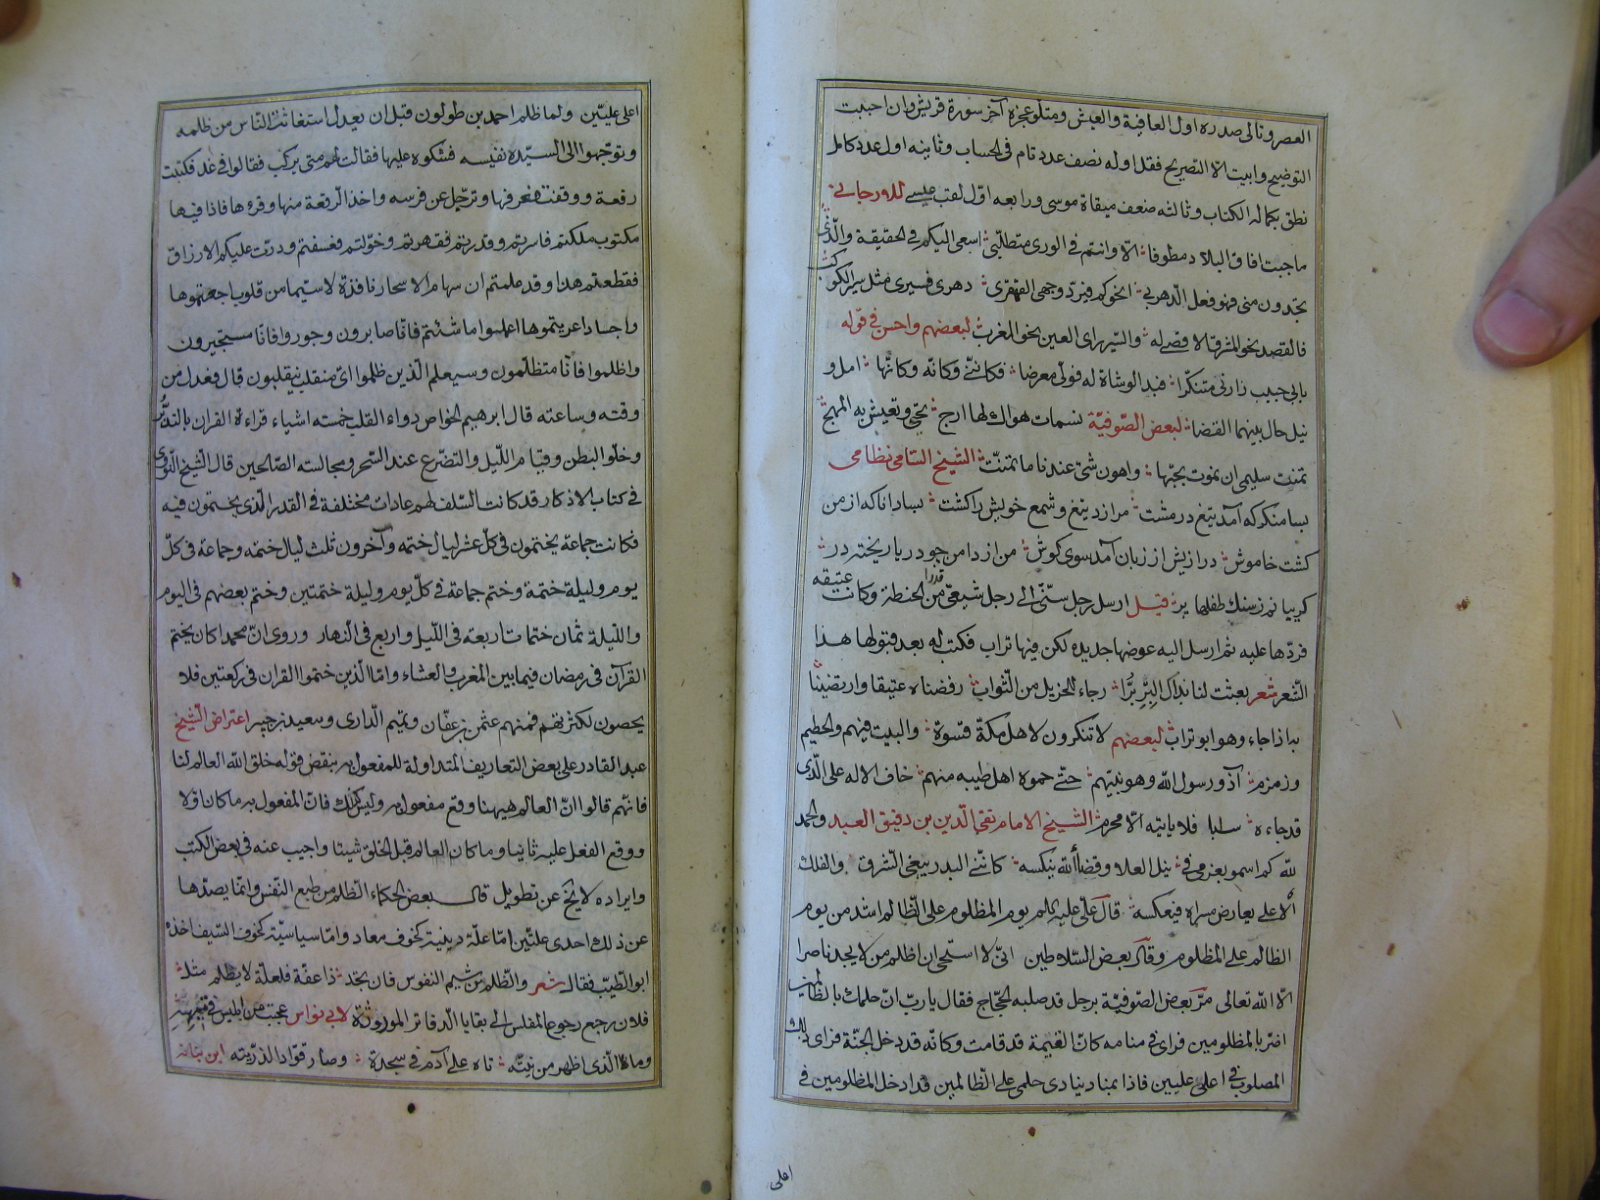 العصر وتالى صدره اول العافية والعيش ومتلو عجزه آخر سورة قريش وان احببت
التوضيح وابيت الا التصريح فقل اوله نصف عدد تام فى الحساب وثانيه اول عدد كامل
نطق بكماله الكتاب وثالثه ضعف ميقاة موسى ورابعه اول لقب عيسى للارجانى
ما جبت افاق البلاد مطوفا الا وانتم فى الورى متطلبى اسعى اليكم فى الحقيقة والذى
تجدون منى فهو فعل الدهر بى انحوكم فيرد وجهى القهقرى دهرى فسيرى مثل سير الكوكب
فالقصد نحو المشرق الاقصى له والسير راى العين نحو المغرب لبعضهم واحسن فى قوله
بابى حبيب زارنى متنكرا فبدا الوشاة له فولى معرضا فكاننى وكانه وكانها امل و
نيل حال بينهما القضا لبعض الصوفية نسمات هواك لها ارج تحيى وتعيش به المهج
تمنت سليمى ان نموت بحبها واهون شئ عندنا ما تمنت الشيخ السامى نظامى
بسا منكر كه آمد تيغ در مشت مرا زد تيغ وشمع خويش را كشت بسا دانا كه از من
كشت خاموش درازيش از زبان آمد سوى كوش من از دامن چو دريا ريخته در
كريبانم ز سنك طفلها پر قيل ارسل رجل سنى الى رجل شيعى قدرا من الحنطة وكانت عتيقه
فردها عليه ثم ارسل اليه عوضها جديده لكن فيها تراب فكتب له بعد قبولها هذا
الشعر شعر بعثت لنا بذاك البر برا رجاء للجزيل من الثواب رفضناه عتيقا وارتضينا
به اذ جاء وهو ابو تراب لبعضهم لا تنكرون لاهل مكة قسوة والبيت فيهم والحطيم
وزمزم آذو رسول الله وهو نبيهم حتى حموه اهل طيبه منهم خاف الاله على الذى
قد جاءه سلبا فلا ياتيه الا محرم الشيخ الامام تقى الدين بن دقيق العيد والحمد
لله كم اسمو بعزمى فى نيل العلا وقضاء الله ينكسه كاننى البدر يبغى الشرق والفلك
الاعلى يعارض مسراه فيعكسه قال على عليه السلم يوم المظلوم على الظالم اشد من يوم
الظالم على المظلوم وقال بعض السلاطين انى لا استحى ان اظلم من لا يجد ناصرا
الا الله تعالى مر بعض الصوفية برجل قد صلبه الحجاج فقال يا رب ان حلمك بالظالمين
اضر بالمظلومين فراى فى منامه كان القيمة قد قامت وكانه قد دخل الجنة فراى ذلك
المصلوب فى اعلى عليين فاذا بمناد ينادى حلمى على الظالمين قد ادخل المظلومين فى
اعلى
اعلى عليين ولما ظلم احمد بن طولون قبل ان يعدل استغاثت الناس من ظلمه
وتوجهوا الى السيدة نفيسه فشكوه عليها فقالت لهم متى يركب فقالوا فى غد فكتبت
رقعة ووقفت فعرفها وترجل عن فرسه واخذ الرقعة منها وقرءها فاذا فيها
مكتوب ملكتم فاسرتم وقدرتم فقهرتم وخولتم فعسفتم ودرت عليكم الارزاق
فقطعتم هذا وقد علمتم ان سهام الاسحار نافذة لا سيما من قلوب اجعتموها
واجساد اعريتموها اعملوا ما شئتم فانا صابرون وجوروا فانا مستجيرون
واظلموا فانا متظلمون وسيعلم الذين ظلموا اى منقلب ينقلبون قال فعدل من
وقته وساعته قال ابرهيم الخواص دواء القلب خمسته اشياء قراءة القران بالتدبر
وخلو البطن وقيام الليل والتضرع عند السحر ومجالسته الصالحين قال الشيخ النووى
فى كتاب الاذكار قد كانت السلف لهم عادات مختلفة فى القدر الذى يختمون فيه
فكانت جماعة يختمون فى كل عشر ليال ختمه وآخرون ثلث ليال ختمه وجماعة فى كل
يوم وليلة ختمة وختم جماعة فى كل يوم وليلة ختمتين وختم بعضهم فى اليوم
والليلة ثمان ختمات اربعة فى الليل واربع فى النهار وروى ان محمدا كان يختم
القرآن فى رمضان فيما بين المغرب والعشاء واما الذين ختموا القران فى ركعتين فلا
يحصون لكثرتهم فمنهم عثمن بن عفان وتميم الدارى وسعيد بن جبير اعتراض الشيخ
عبد القادر على بعض التعاريف المتداولة للمفعول به بنقض قوله خلق الله العالم لنا
فانهم قالوا ان العالم هيهنا وقع مفعول به وليس كذلك فان المفعول به ما كان اولا
ووقع الفعل عليه ثانيا وما كان العالم قبل الخلق شيئا واجيب عنه فى بعض الكتب
وايراده لا يخ عن تطويل قال بعض الحكماء الظلم من طبع النفس وانما يصدها
عن ذلك احدى علتين اما علة دينية كخوف معاد واما سياسية كخوف السيف اخذه
ابو الطيب فقال شعر والظلم من شيم النفوس فان تجد ذا عفة فلعلة لا يظلم مثل
فلان رجع رجوع المفلس الى بقايا الدفاتر الموروثة لابى نواس عجبت من ابليس فى
وما الذى اظهر من نيته تاه على آدم فى سجدة وصار قوادا لذريته ابن نباته